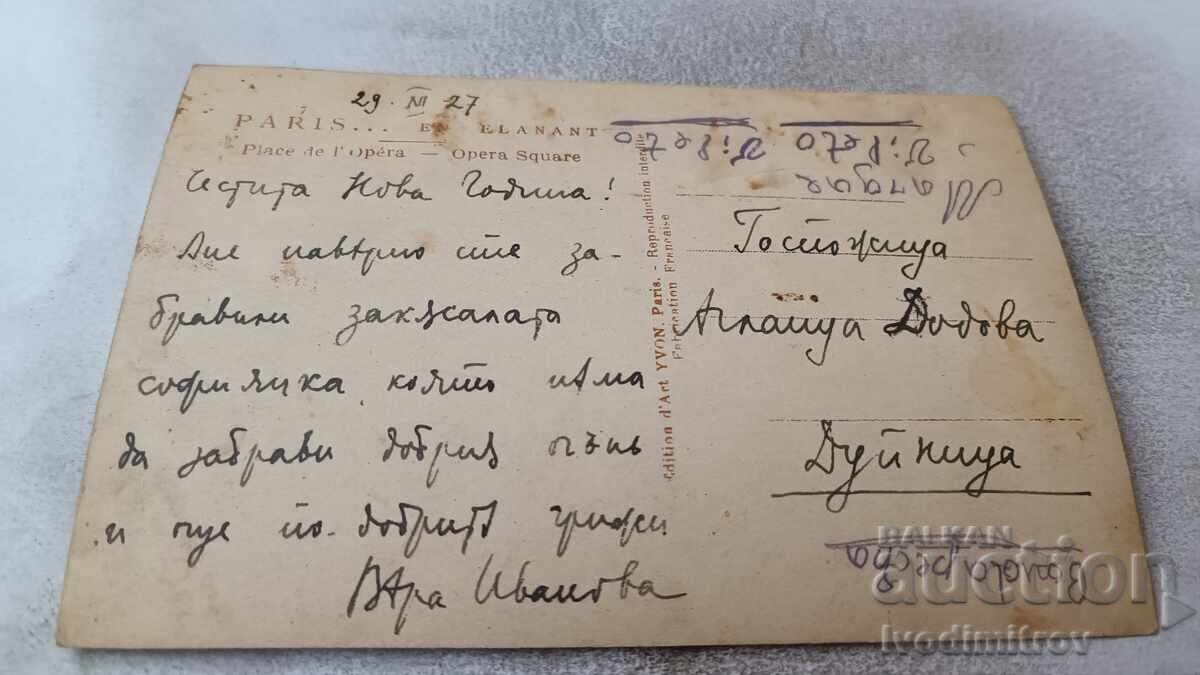 29. XII 27
PARIS... EN FLANANT
Place de l'Opéra — Opera Square
Честита Нова Година!
Вие навѣрно сте за-
бравили закѫсалата
софиянка, която нѣма
да забрави добрия огънь
и още по-добритѣ грижи
Вѣра Иванова
Edition d'Art YVON, Paris. - Reproduction interdite
Fabrication Française
Госпожица
Аглаица Додова
Дупница
BALKAN
auction
Ivodimitrov